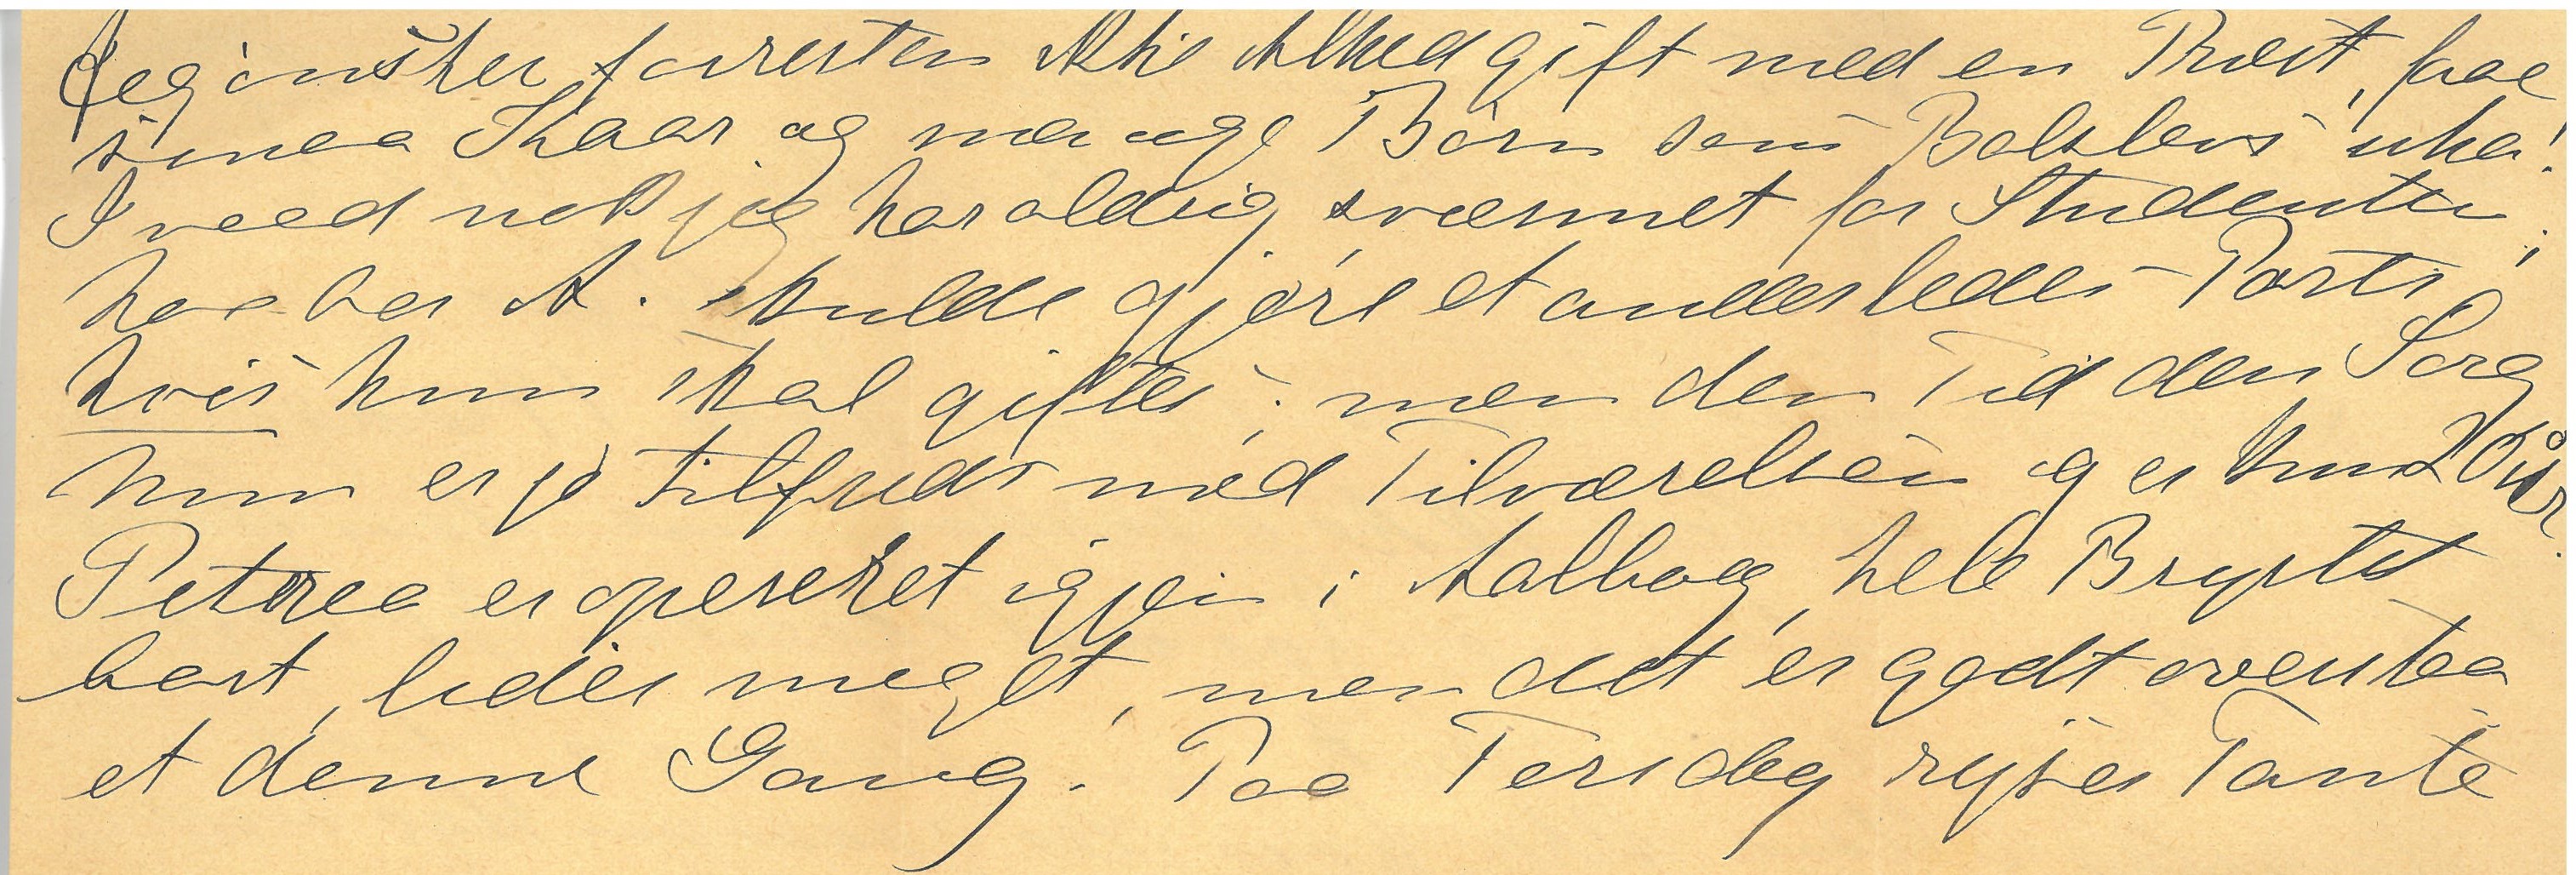 Jeg ønsker forresten ikke Alhed gift med en Præst, faae
smaa Kaar og mange Børn som Balslevs uha!
I veed nok jeg har aldrig sværmet for Studenter,
haaber A. skulde gjøre et anderledes Parti,
hvis hun skal giftes; men den Tid den Sorg
hun er jo tilfreds med Tilværelsen og er kun 20 Aar.
Petrea er opereret igjen i Aalborg, hele Brystet
bort, lider meget, men det er godt overstaa
et denne Gang. Paa Torsdag rejser Tante